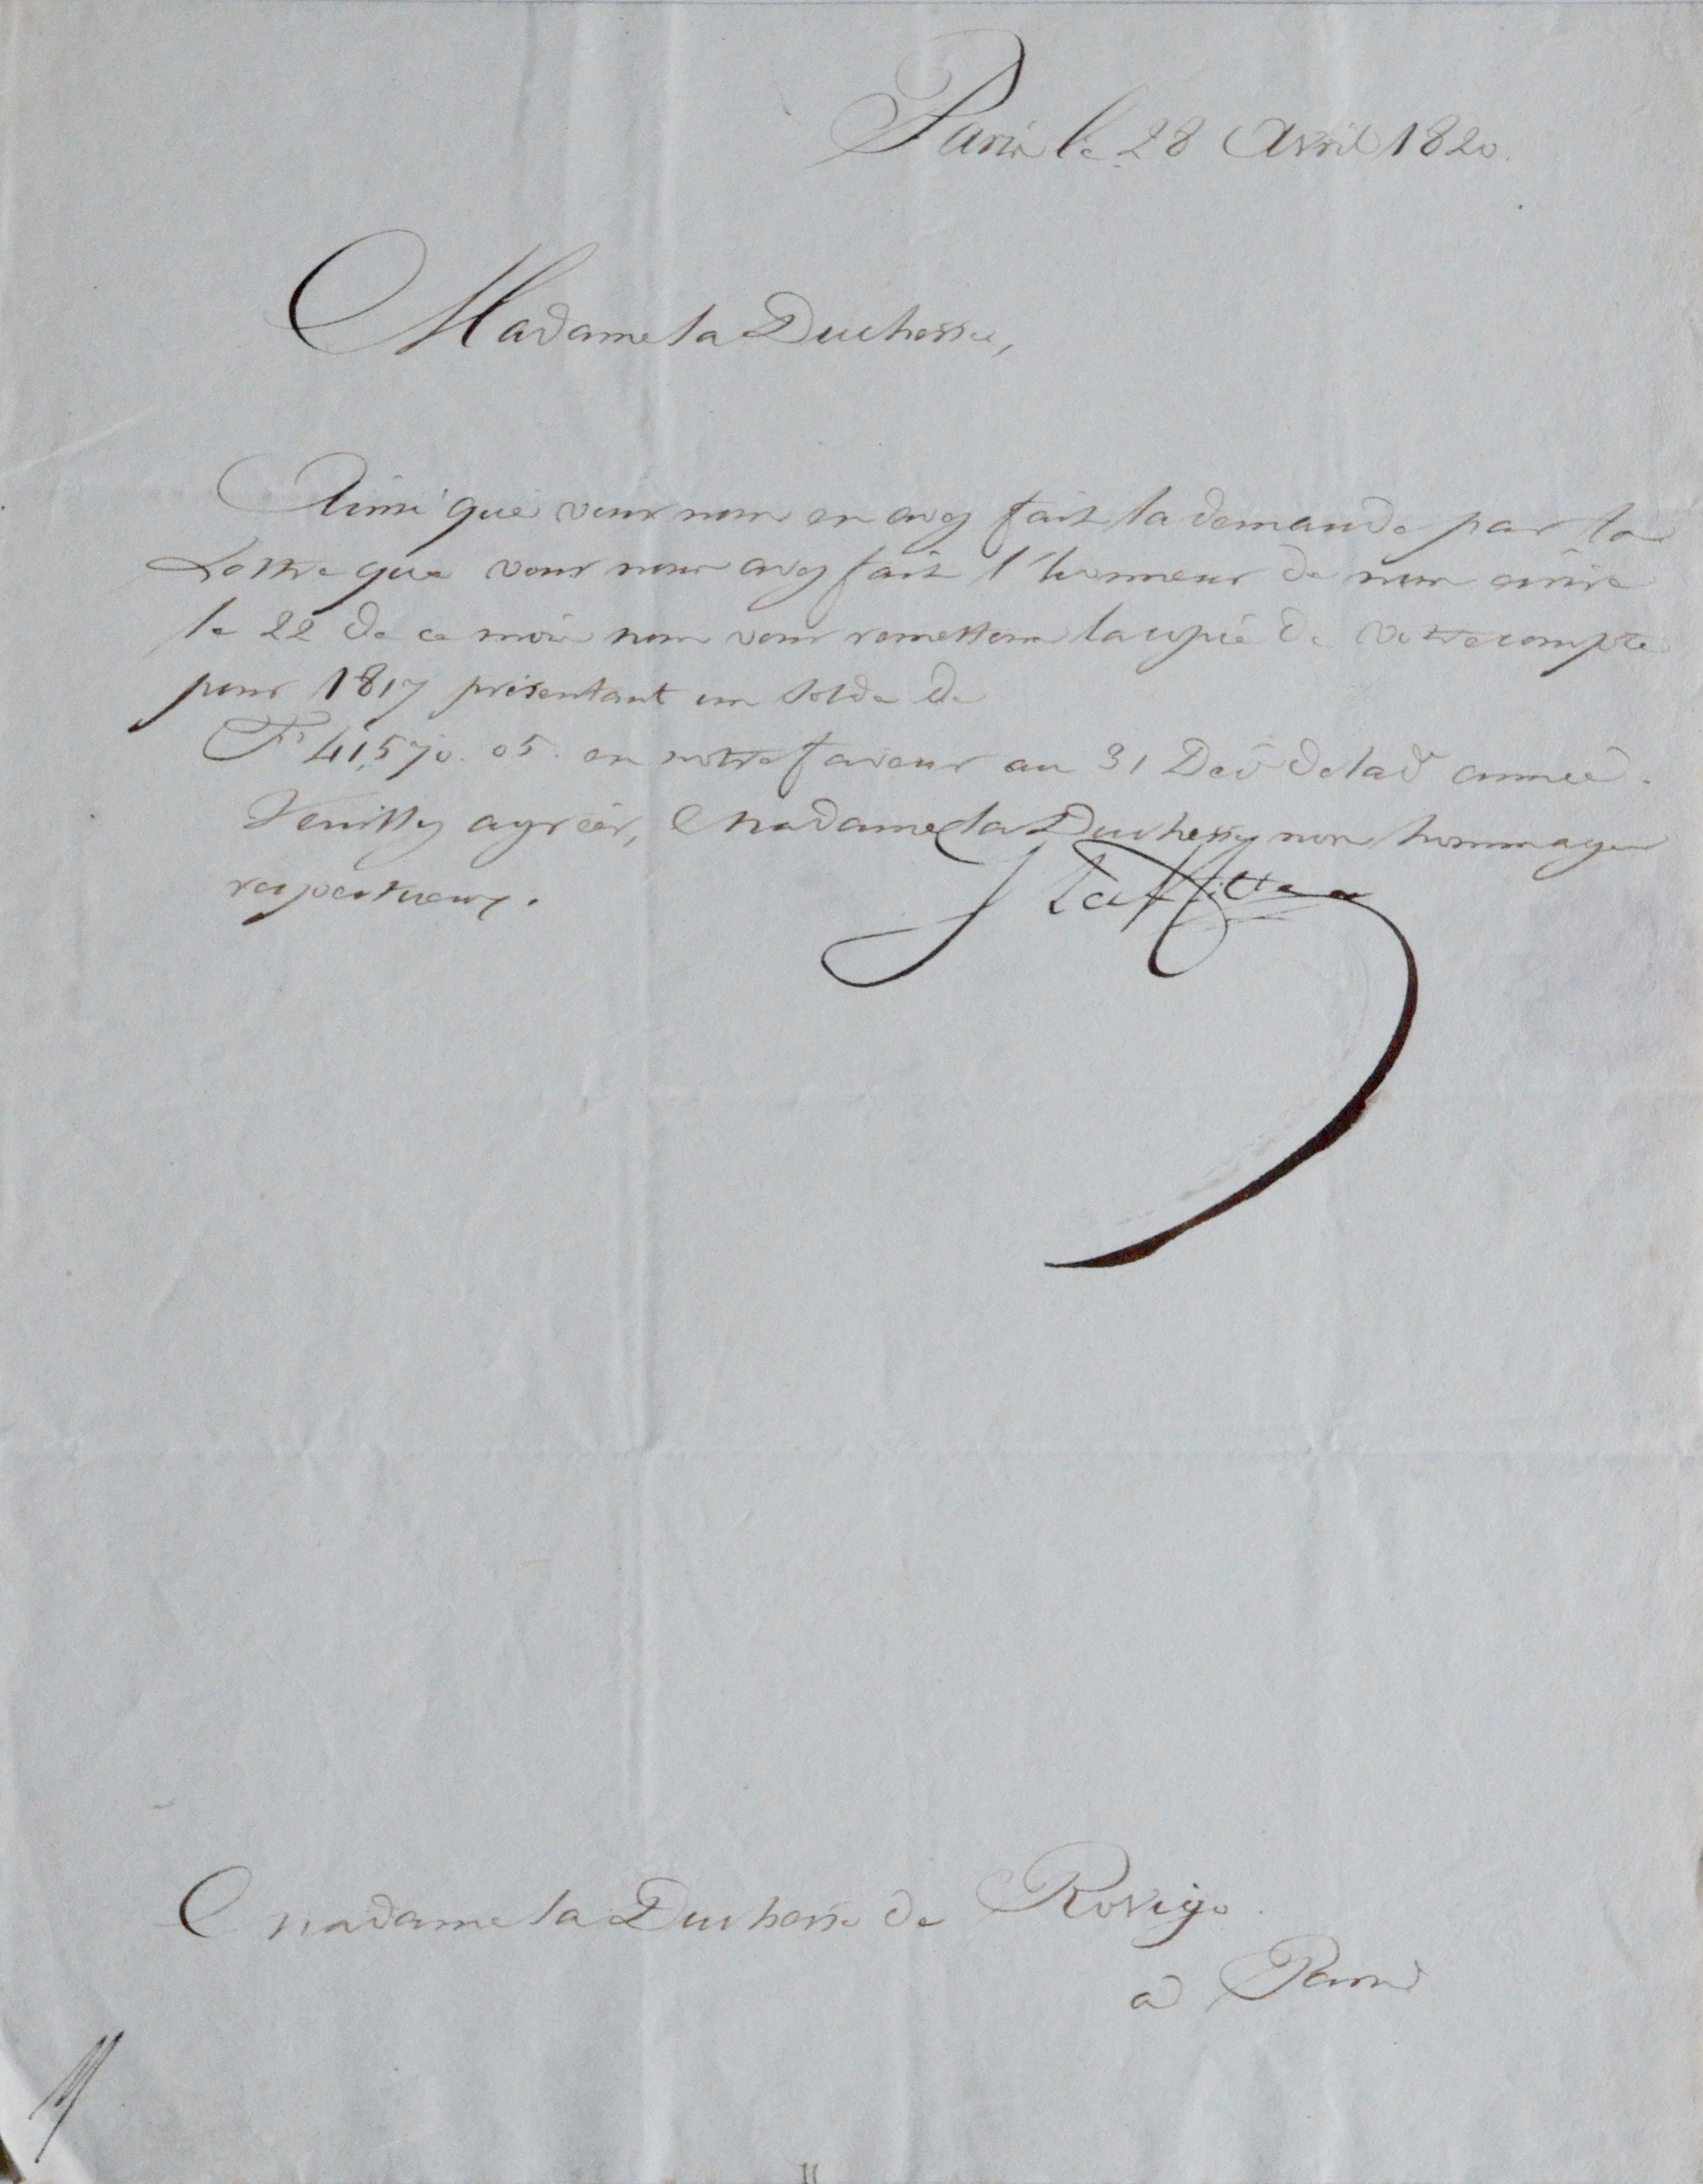 Paris le 28 Avril 1820.
Madame la Duchesse,
Ainsi que vous nous en avez fait la demande par la
Lettre que vous nous avez fait l'honneur de nous écrire
le 22 de ce mois nous vous remettons la copie de votre compte
pour 1817 présentant un solde de
Fr 41,570. 05. en notre faveur au 31 Dec de lad année.
Veuillez agréer, Madame la Duchesse, nos hommages
respectueux.
J Laffitte
Madame la Duchesse de Rovigo.
a Paris